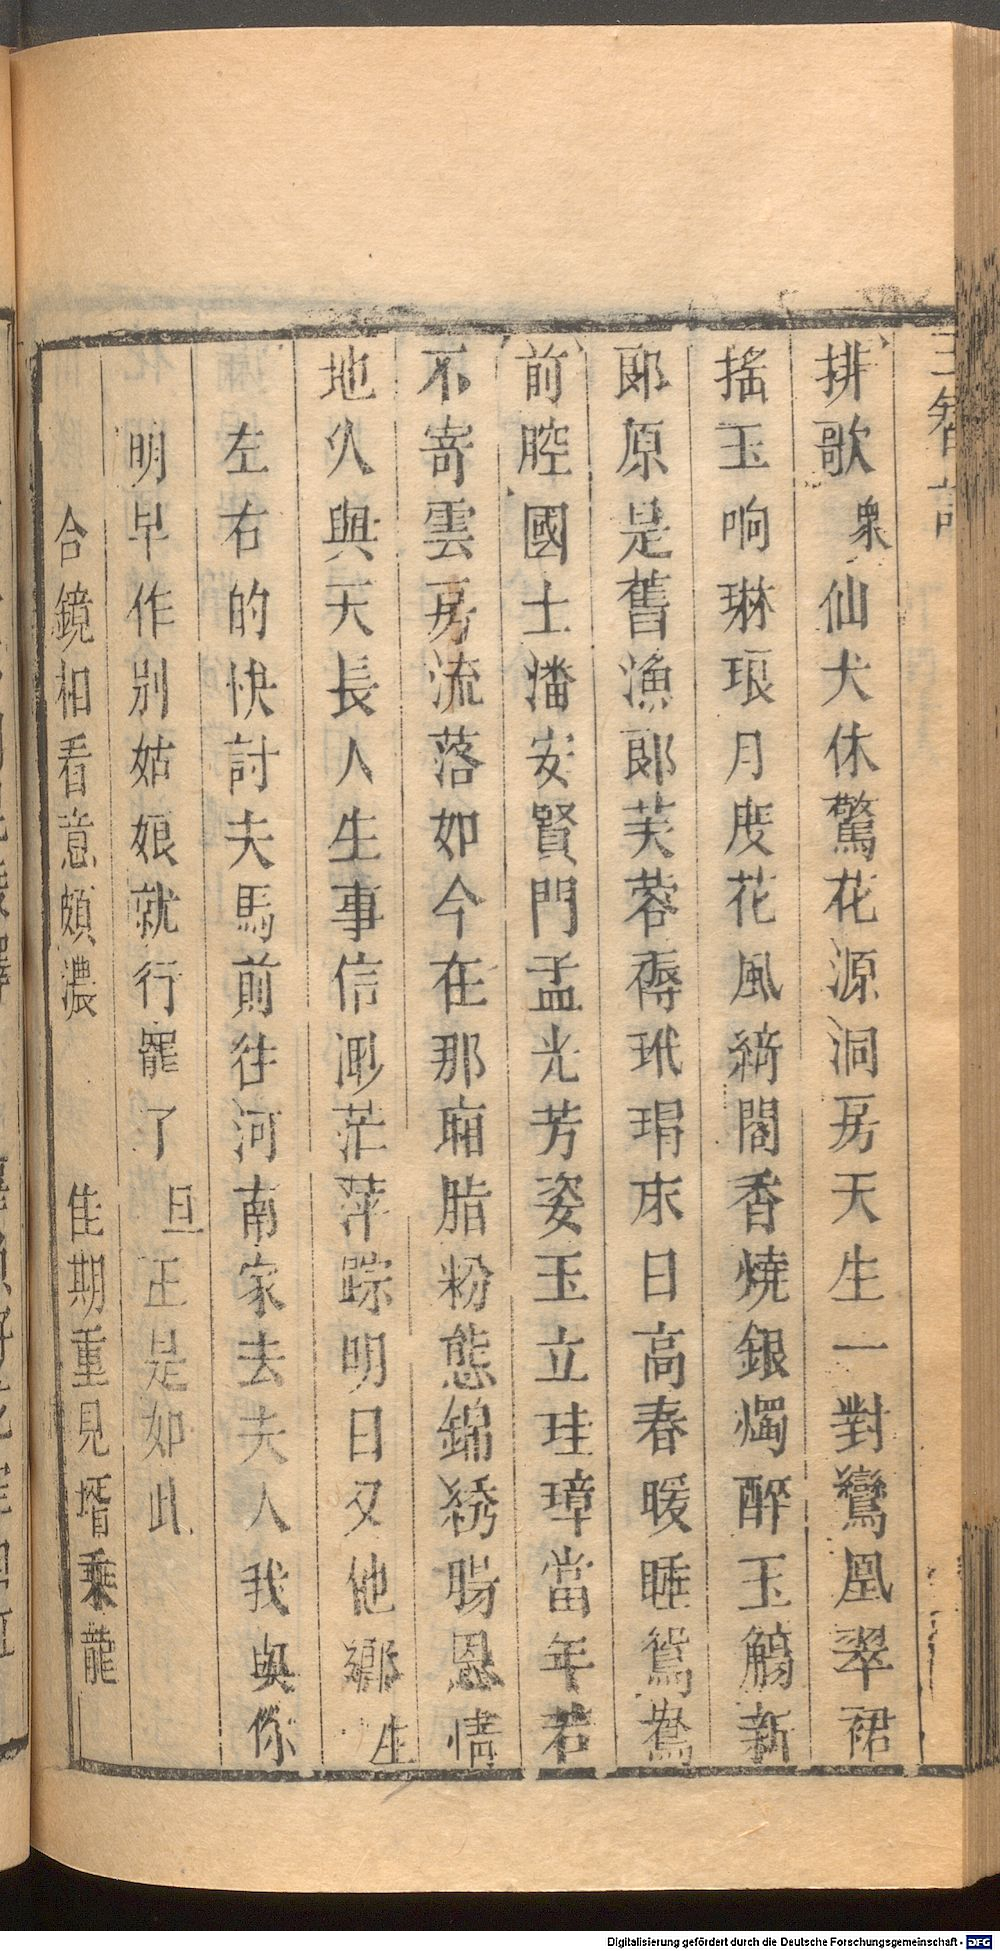 排歌 衆 仙犬休驚花源洞房天生一對鸞凰翠裙
搖玉响琳琅月度花風綺閣香燒銀燭醉玉觴新
郎原是舊漁郎芙蓉褥玳瑁床日高春暖睡鴛鴦
前腔國士潘安賢門孟光芳姿玉立珪璋當年若
不寄雲房流落如今在那廂脂粉態錦綉腸恩情
地久與天長人生事信渺茫萍踪明日又他鄉 生
左右的快討夫馬前往河南家去夫人我與你
明早作別姑娘就行罷了 旦 正是如此
合鏡相看意頗濃 佳期重見壻乘龍
Digitalisierung gefördert durch die Deutsche Forschungsgemeinschaft - DFG